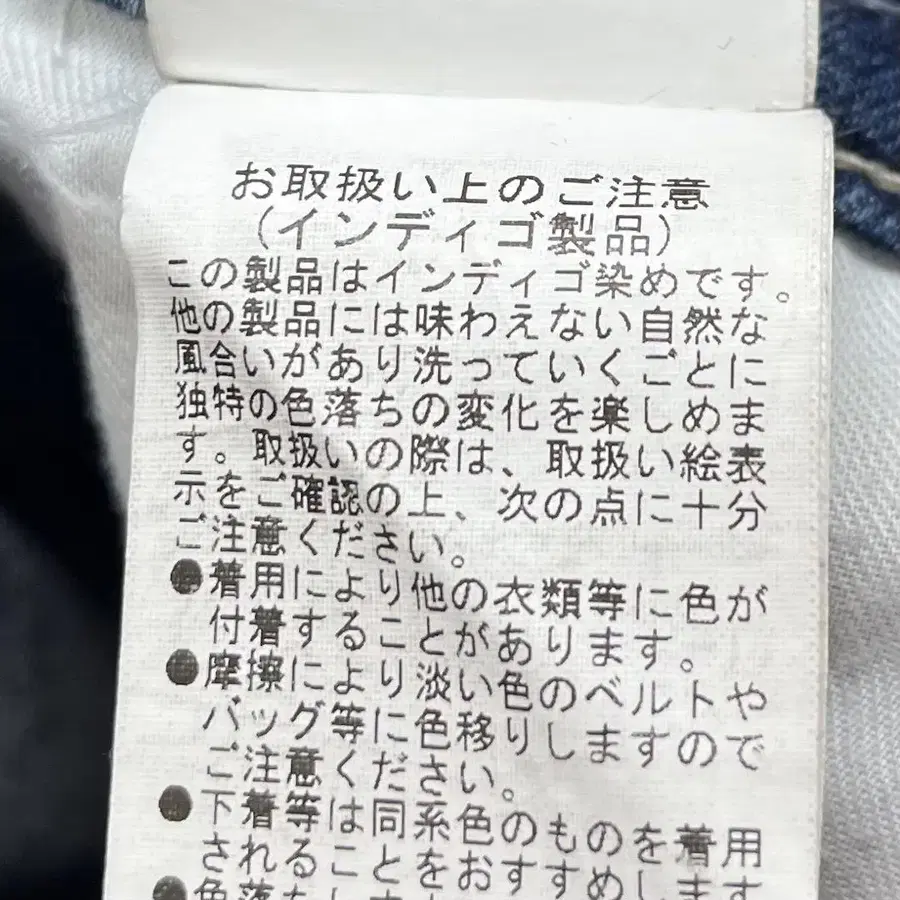 お取扱い上のご注意
(インディゴ製品)
この製品はインディゴ染めです。
他の製品には味わえない自然な
風合いがあり洗っていくごとに
独特の色落ちの変化を楽しめま
す。取扱いの際は、取扱い絵表
示をご確認の上、次の点に十分
ご注意ください。
●着用により他の衣類等に色が
付着することがあります。
●摩擦により淡い色のベルトや
バッグ等に色移りしますので
ご注意ください。
●下着等は同系色のものを着用
されることをおすすめします
●色落ち